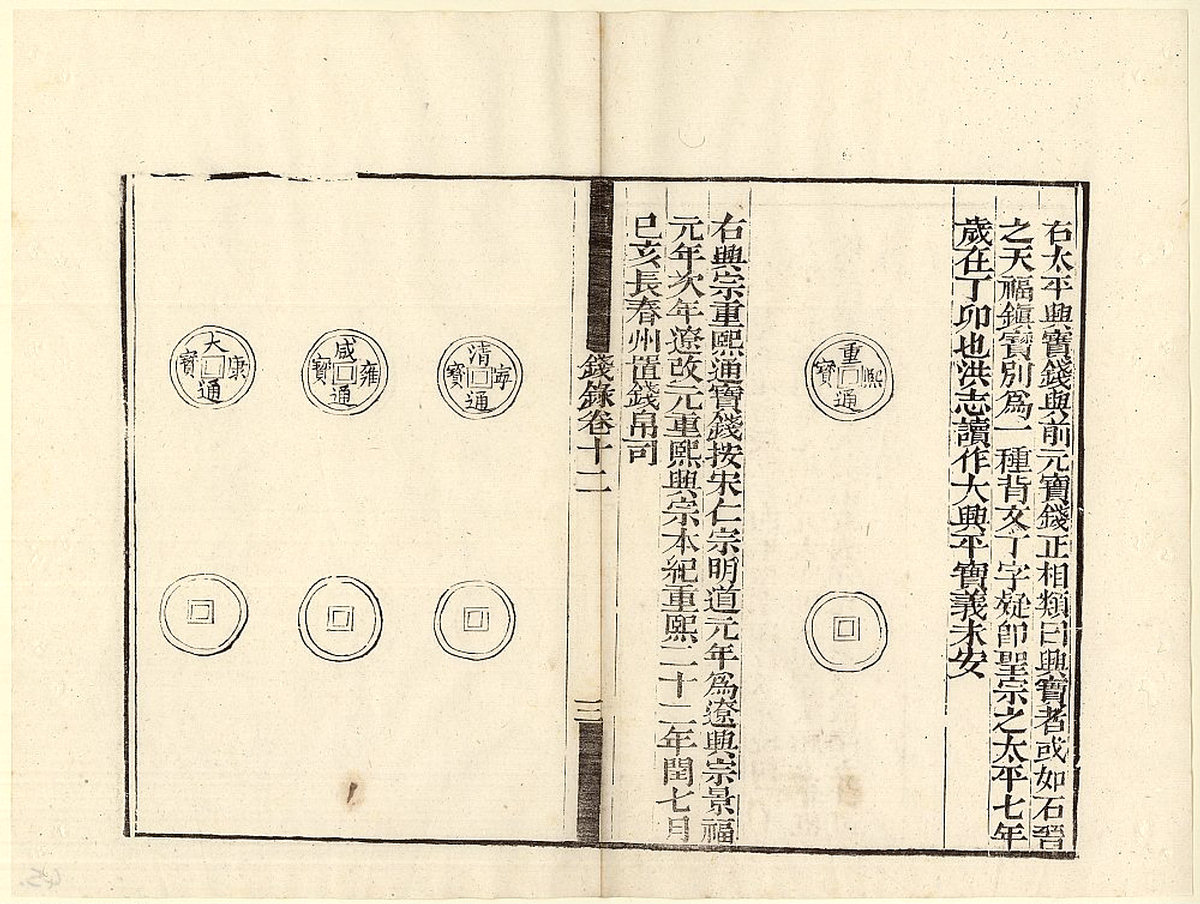 右太平興寶錢與前元寶錢正相類曰興寶者或如石晉
之天福鎮寶別為一種背文丁字疑即聖宗之太平七年
歲在丁卯也洪志讀作大興平寶義未安
重熙通寶
右興宗重熙通寶錢按宋仁宗明道元年為遼興宗景福
元年次年遼改元重熙興宗本紀重熙二十二年閏七月
已亥長春州置錢帛司
錢錄卷十二
三
清寧通寶
咸雍通寶
大康通寶